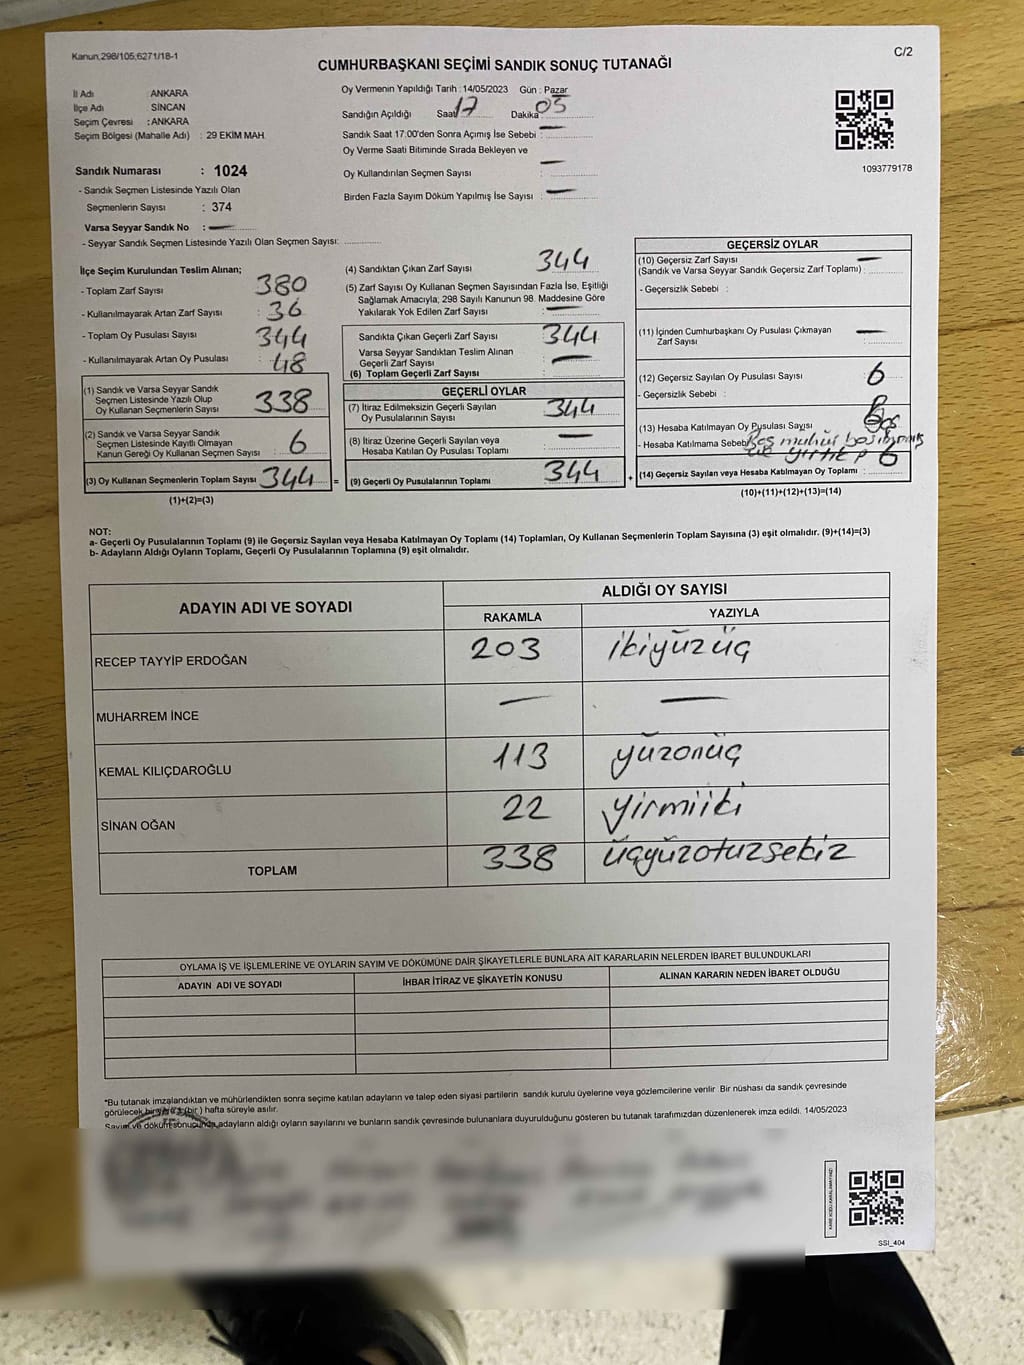 Kanun;298/105;6271/18-1
C/2
CUMHURBAŞKANI SEÇİMİ SANDIK SONUÇ TUTANAĞI
İl Adı : ANKARA
İlçe Adı SİNCAN
Seçim Çevresi : ANKARA
Seçim Bölgesi (Mahalle Adı) : 29 EKİM MAH.
Oy Vermenin Yapıldığı Tarih : 14/05/2023 Gün : Pazar
Sandığın Açıldığı Saat 17 Dakika 05
Sandık Saat 17:00'den Sonra Açımış İse Sebebi : —
Oy Verme Saati Bitiminde Sırada Bekleyen ve
Oy Kullandırılan Seçmen Sayısı : —
Birden Fazla Sayım Döküm Yapılmış İse Sayısı : —
1093779178
Sandık Numarası : 1024
- Sandık Seçmen Listesinde Yazılı Olan
Seçmenlerin Sayısı : 374
Varsa Seyyar Sandık No : —
- Seyyar Sandık Seçmen Listesinde Yazılı Olan Seçmen Sayısı:
İlçe Seçim Kurulundan Teslim Alınan;
- Toplam Zarf Sayısı 380
- Kullanılmayarak Artan Zarf Sayısı : 36
- Toplam Oy Pusulası Sayısı 344
- Kullanılmayarak Artan Oy Pusulası : 48
(1) Sandık ve Varsa Seyyar Sandık
Seçmen Listesinde Yazılı Olup
Oy Kullanan Seçmenlerin Sayısı 338
(2) Sandık ve Varsa Seyyar Sandık
Seçmen Listesinde Kayıtlı Olmayan
Kanun Gereği Oy Kullanan Seçmen Sayısı : 6
(3) Oy Kullanan Seçmenlerin Toplam Sayısı 344 =
(1)+(2)=(3)
(4) Sandıktan Çıkan Zarf Sayısı 344
(5) Zarf Sayısı Oy Kullanan Seçmen Sayısından Fazla İse, Eşitliği
Sağlamak Amacıyla, 298 Sayılı Kanunun 98. Maddesine Göre
Yakılarak Yok Edilen Zarf Sayısı : —
Sandıkta Çıkan Geçerli Zarf Sayısı 344
Varsa Seyyar Sandıktan Teslim Alınan
Geçerli Zarf Sayısı : —
(6) Toplam Geçerli Zarf Sayısı
GEÇERLİ OYLAR
(7) İtiraz Edilmeksizin Geçerli Sayılan
Oy Pusulalarının Sayısı 344
(8) İtiraz Üzerine Geçerli Sayılan veya
Hesaba Katılan Oy Pusulası Toplamı : —
(9) Geçerli Oy Pusulalarının Toplamı 344 +
GEÇERSİZ OYLAR
(10) Geçersiz Zarf Sayısı —
(Sandık ve Varsa Seyyar Sandık Geçersiz Zarf Toplamı) :
- Geçersizlik Sebebi :
(11) İçinden Cumhurbaşkanı Oy Pusulası Çıkmayan
Zarf Sayısı : —
(12) Geçersiz Sayılan Oy Pusulası Sayısı : 6
- Geçersizlik Sebebi :
(13) Hesaba Katılmayan Oy Pusulası Sayısı
- Hesaba Katılmama Sebebi Boş mühür
(14) Geçersiz Sayılan veya Hesaba Katılmayan Oy Toplamı : 6
(10)+(11)+(12)+(13)=(14)
NOT:
a- Geçerli Oy Pusulalarının Toplamı (9) ile Geçersiz Sayılan veya Hesaba Katılmayan Oy Toplamı (14) Toplamları, Oy Kullanan Seçmenlerin Toplam Sayısına (3) eşit olmalıdır. (9)+(14)=(3)
b- Adayların Aldığı Oyların Toplamı, Geçerli Oy Pusulalarının Toplamına (9) eşit olmalıdır.
ADAYIN ADI VE SOYADI
ALDIĞI OY SAYISI
RAKAMLA YAZIYLA
RECEP TAYYİP ERDOĞAN 203 ikiyüzüç
MUHARREM İNCE — —
KEMAL KILIÇDAROĞLU 113 yüzonüç
SİNAN OĞAN 22 yirmiiki
TOPLAM 338 üçyüzotuzsekiz
OYLAMA İŞ VE İŞLEMLERİNE VE OYLARIN SAYIM VE DÖKÜMÜNE DAİR ŞİKAYETLERLE BUNLARA AİT KARARLARIN NELERDEN İBARET BULUNDUKLARI
ADAYIN ADI VE SOYADI İHBAR İTİRAZ VE ŞİKAYETİN KONUSU ALINAN KARARIN NEDEN İBARET OLDUĞU
*Bu tutanak imzalandıktan ve mühürlendikten sonra seçime katılan adayların ve talep eden siyasi partilerin sandık kurulu üyelerine veya gözlemcilerine verilir Bir nüshası da sandık çevresinde
görülecek bir yere 1 (bir) hafta süreyle asılır.
Sayım ve döküm sonucunda adayların aldığı oyların sayılarını ve bunların sandık çevresinde bulunanlara duyurulduğunu gösteren bu tutanak tarafımızdan düzenlenerek imza edildi. 14/05/2023
SSI_404